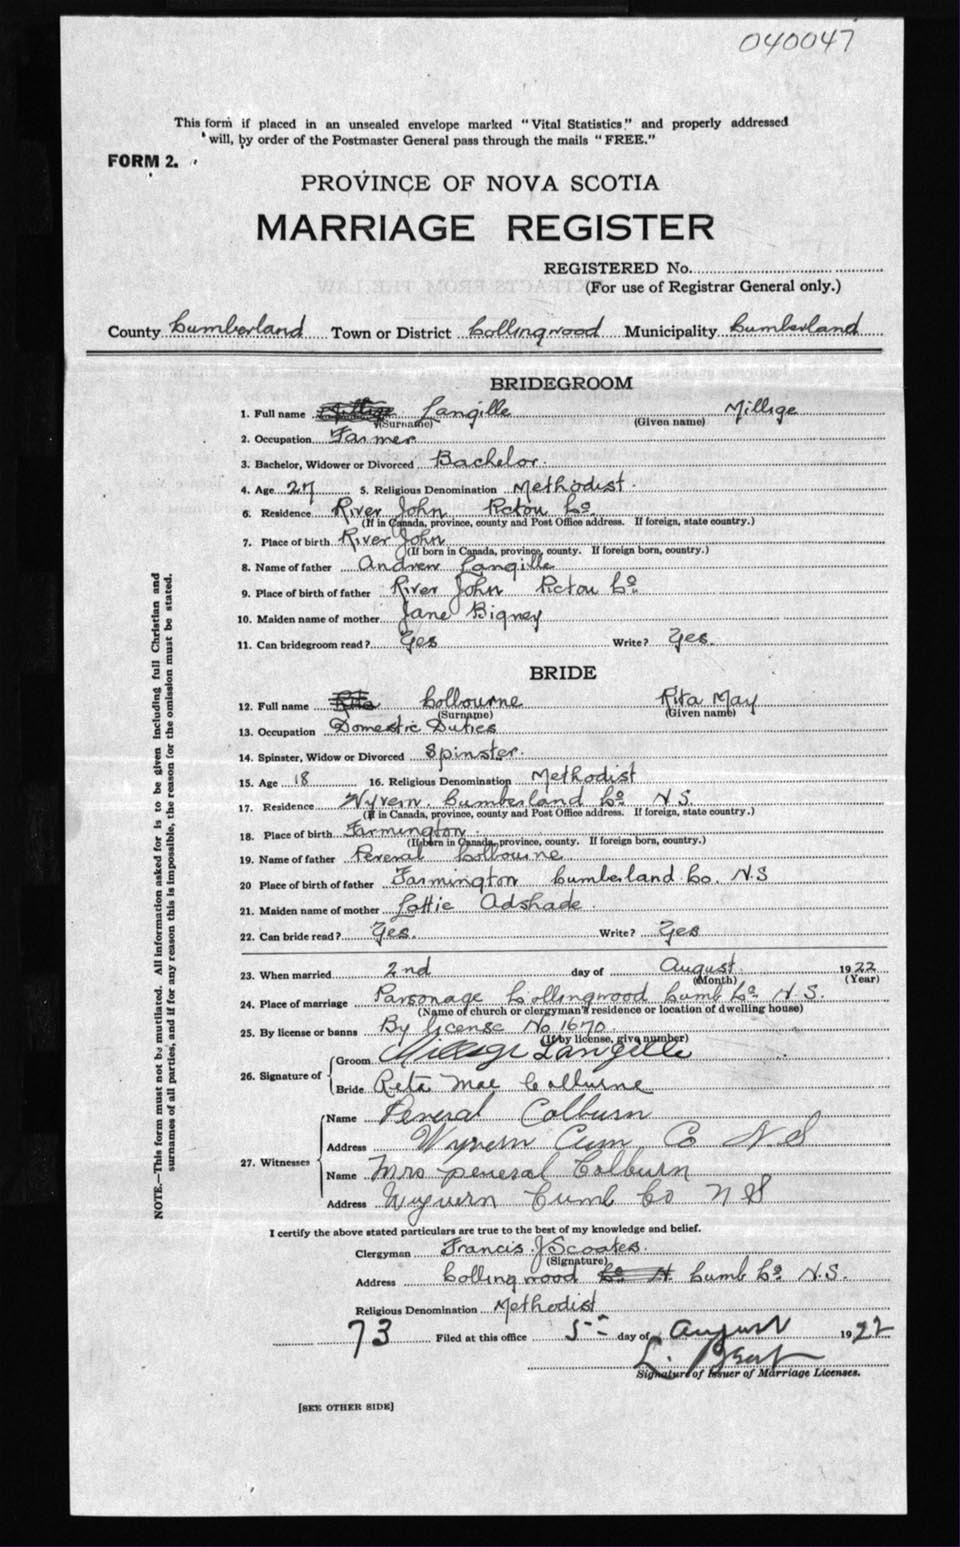 040047
This form if placed in an unsealed envelope marked "Vital Statistics," and properly addressed
will, by order of the Postmaster General pass through the mails "FREE."
FORM 2.
PROVINCE OF NOVA SCOTIA
MARRIAGE REGISTER
REGISTERED No.
(For use of Registrar General only.)
County Cumberland Town or District Collingwood Municipality Cumberland
BRIDEGROOM
1. Full name Langille Millige
(Surname) (Given name)
2. Occupation Farmer
3. Bachelor, Widower or Divorced Bachelor.
4. Age 27 5. Religious Denomination Methodist.
6. Residence River John Pictou Co.
(If in Canada, province, county and Post Office address. If foreign, state country.)
7. Place of birth River John
(If born in Canada, province, county. If foreign born, country.)
8. Name of father Andrew Langille
9. Place of birth of father River John Pictou Co.
10. Maiden name of mother Jane Bigney
11. Can bridegroom read? Yes Write? Yes.
BRIDE
12. Full name Rita Colbourne Rita May
(Surname) (Given name)
13. Occupation Domestic Duties
14. Spinster, Widow or Divorced Spinster.
15. Age 18 16. Religious Denomination Methodist
17. Residence Wyvern. Cumberland Co. N.S.
(If in Canada, province, county and Post Office address. If foreign, state country.)
18. Place of birth Farmington.
(If born in Canada, province, county. If foreign born, country.)
19. Name of father Peveral Colbourne
20 Place of birth of father Farmington Cumberland Co. N.S
21. Maiden name of mother Lottie Adshade.
22. Can bride read? Yes. Write? Yes
23. When married 2nd day of August. 1922
(Month) (Year)
24. Place of marriage Parsonage Collingwood Cumb Co. N.S.
(Name of church or clergyman's residence or location of dwelling house)
25. By license or banns By license No 1670.
(If by license, give number)
26. Signature of Groom Millege Langille
Bride Reta Mae Colburne
27. Witnesses Name Peveral Colburn
Address Wyvern Cum Co N S
Name Mrs Peveral Colburn
Address Wyvern Cumb Co N S
I certify the above stated particulars are true to the best of my knowledge and belief.
Clergyman Francis J Scoates.
(Signature)
Address Collingwood Co N Cumb Co. N.S.
Religious Denomination Methodist
73 Filed at this office 5 day of August 1922
L.
Signature of Issuer of Marriage Licenses.
[SEE OTHER SIDE]
NOTE.—This form must not be mutilated. All information asked for is to be given including full Christian and
surnames of all parties, and if for any reason this is impossible, the reason for the omission must be stated.